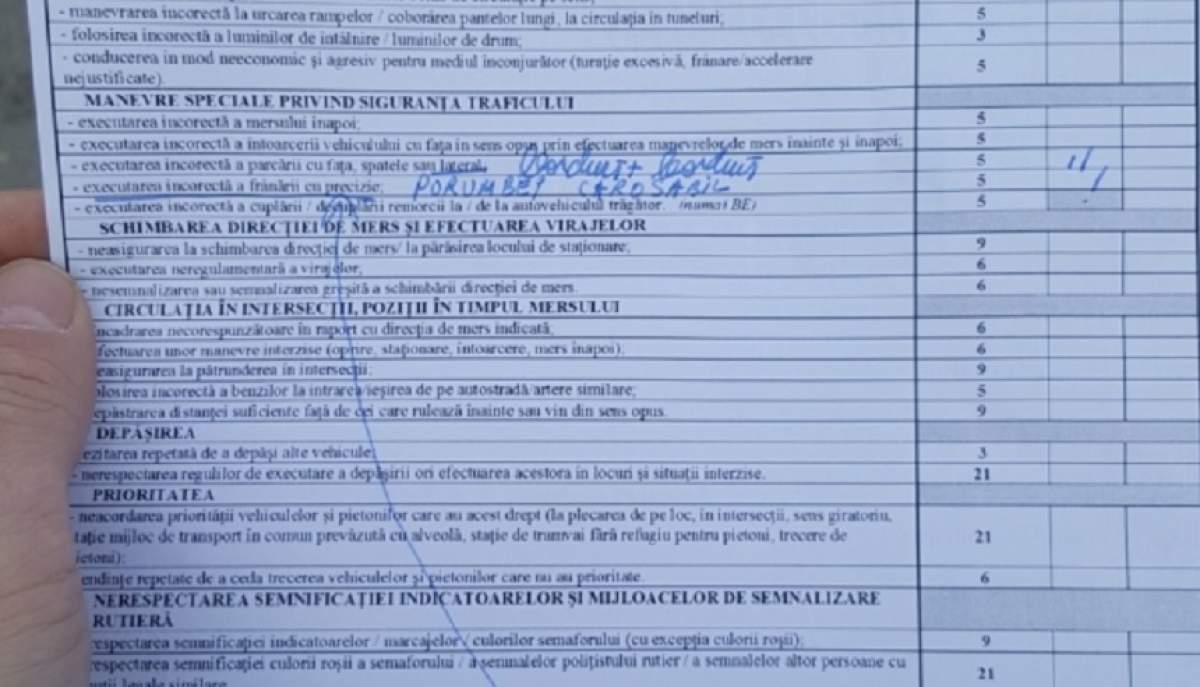 - manevrarea incorectă la urcarea rampelor / coborârea pantelor lungi, la circulația în tuneluri; 5
- folosirea incorectă a luminilor de întâlnire / luminilor de drum; 3
- conducerea în mod neeconomic și agresiv pentru mediul înconjurător (turație excesivă, frânare/accelerare 5
nejustificate).
MANEVRE SPECIALE PRIVIND SIGURANȚA TRAFICULUI
- executarea incorectă a mersului înapoi; 5
- executarea incorectă a întoarcerii vehiculului cu fața în sens opus prin efectuarea manevrelor de mers înainte și înapoi; 5
- executarea incorectă a parcării cu fața, spatele sau lateral. 5
- executarea incorectă a frânării cu precizie; PORUMBEI CAROSABIL 5
- executarea incorectă a cuplării / decuplării remorcii la / de la autovehiculul trăgător. (numai BE) 5
SCHIMBAREA DIRECȚIEI DE MERS ȘI EFECTUAREA VIRAJELOR
- neasigurarea la schimbarea direcției de mers/ la părăsirea locului de staționare; 9
- executarea neregulamentară a virajelor; 6
- nesemnalizarea sau semnalizarea greșită a schimbării direcției de mers. 6
CIRCULAȚIA ÎN INTERSECȚII, POZIȚII ÎN TIMPUL MERSULUI
ncadrarea necorespunzătoare în raport cu direcția de mers indicată; 6
fectuarea unor manevre interzise (oprire, staționare, întoarcere, mers înapoi); 6
easigurarea la pătrunderea în intersecții; 9
olosirea incorectă a benzilor la intrarea/ieșirea de pe autostradă/artere similare; 5
epăstrarea distanței suficiente față de cei care rulează înainte sau vin din sens opus. 9
DEPĂȘIREA
ezitarea repetată de a depăși alte vehicule; 3
- nerespectarea regulilor de executare a depășirii ori efectuarea acestora în locuri și situații interzise. 21
PRIORITATEA
- neacordarea priorității vehiculelor și pietonilor care au acest drept (la plecarea de pe loc, în intersecții, sens giratoriu,
tație mijloc de transport în comun prevăzută cu alveolă, stație de tramvai fără refugiu pentru pietoni, trecere de 21
ietoni);
endințe repetate de a ceda trecerea vehiculelor și pietonilor care nu au prioritate. 6
NERESPECTAREA SEMNIFICAȚIEI INDICATOARELOR ȘI MIJLOACELOR DE SEMNALIZARE
RUTIERĂ
respectarea semnificației indicatoarelor / marcajelor / culorilor semaforului (cu excepția culorii roșii); 9
respectarea semnificației culorii roșii a semaforului / a semnalelor polițistului rutier / a semnalelor altor persoane cu 21
legale similare